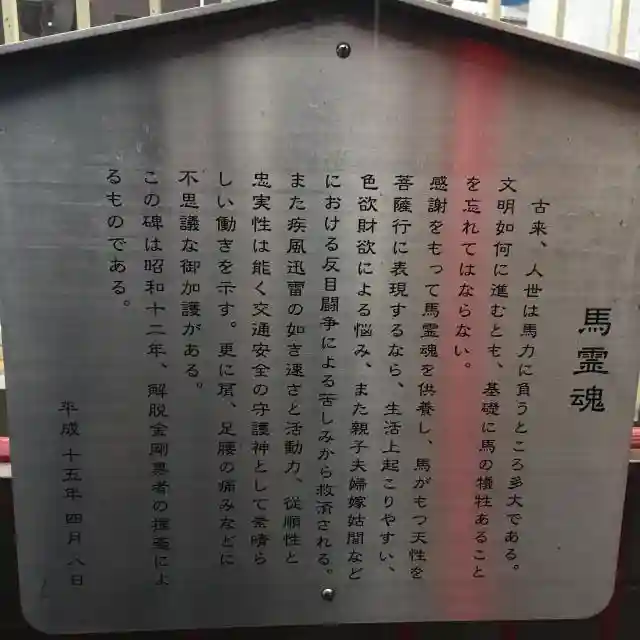 馬霊魂
古来、人世は馬力に負うところ多大である。
文明如何に進むとも、基礎に馬の犠牲あること
を忘れてはならない。
感謝をもって馬霊魂を供養し、馬がもつ天性を
菩薩行に表現するなら、生活上起こりやすい、
色欲財欲による悩み、また親子夫婦嫁姑間など
における反目闘争による苦しみから救済される。
また疾風迅雷の如き速さと活動力、従順性と
忠実性は能く交通安全の守護神として素晴ら
しい働きを示す。更に肩、足腰の痛みなどに
不思議な御加護がある。
この碑は昭和十二年、解脱金剛尊者の推薦によ
るものである。
平成十五年四月八日